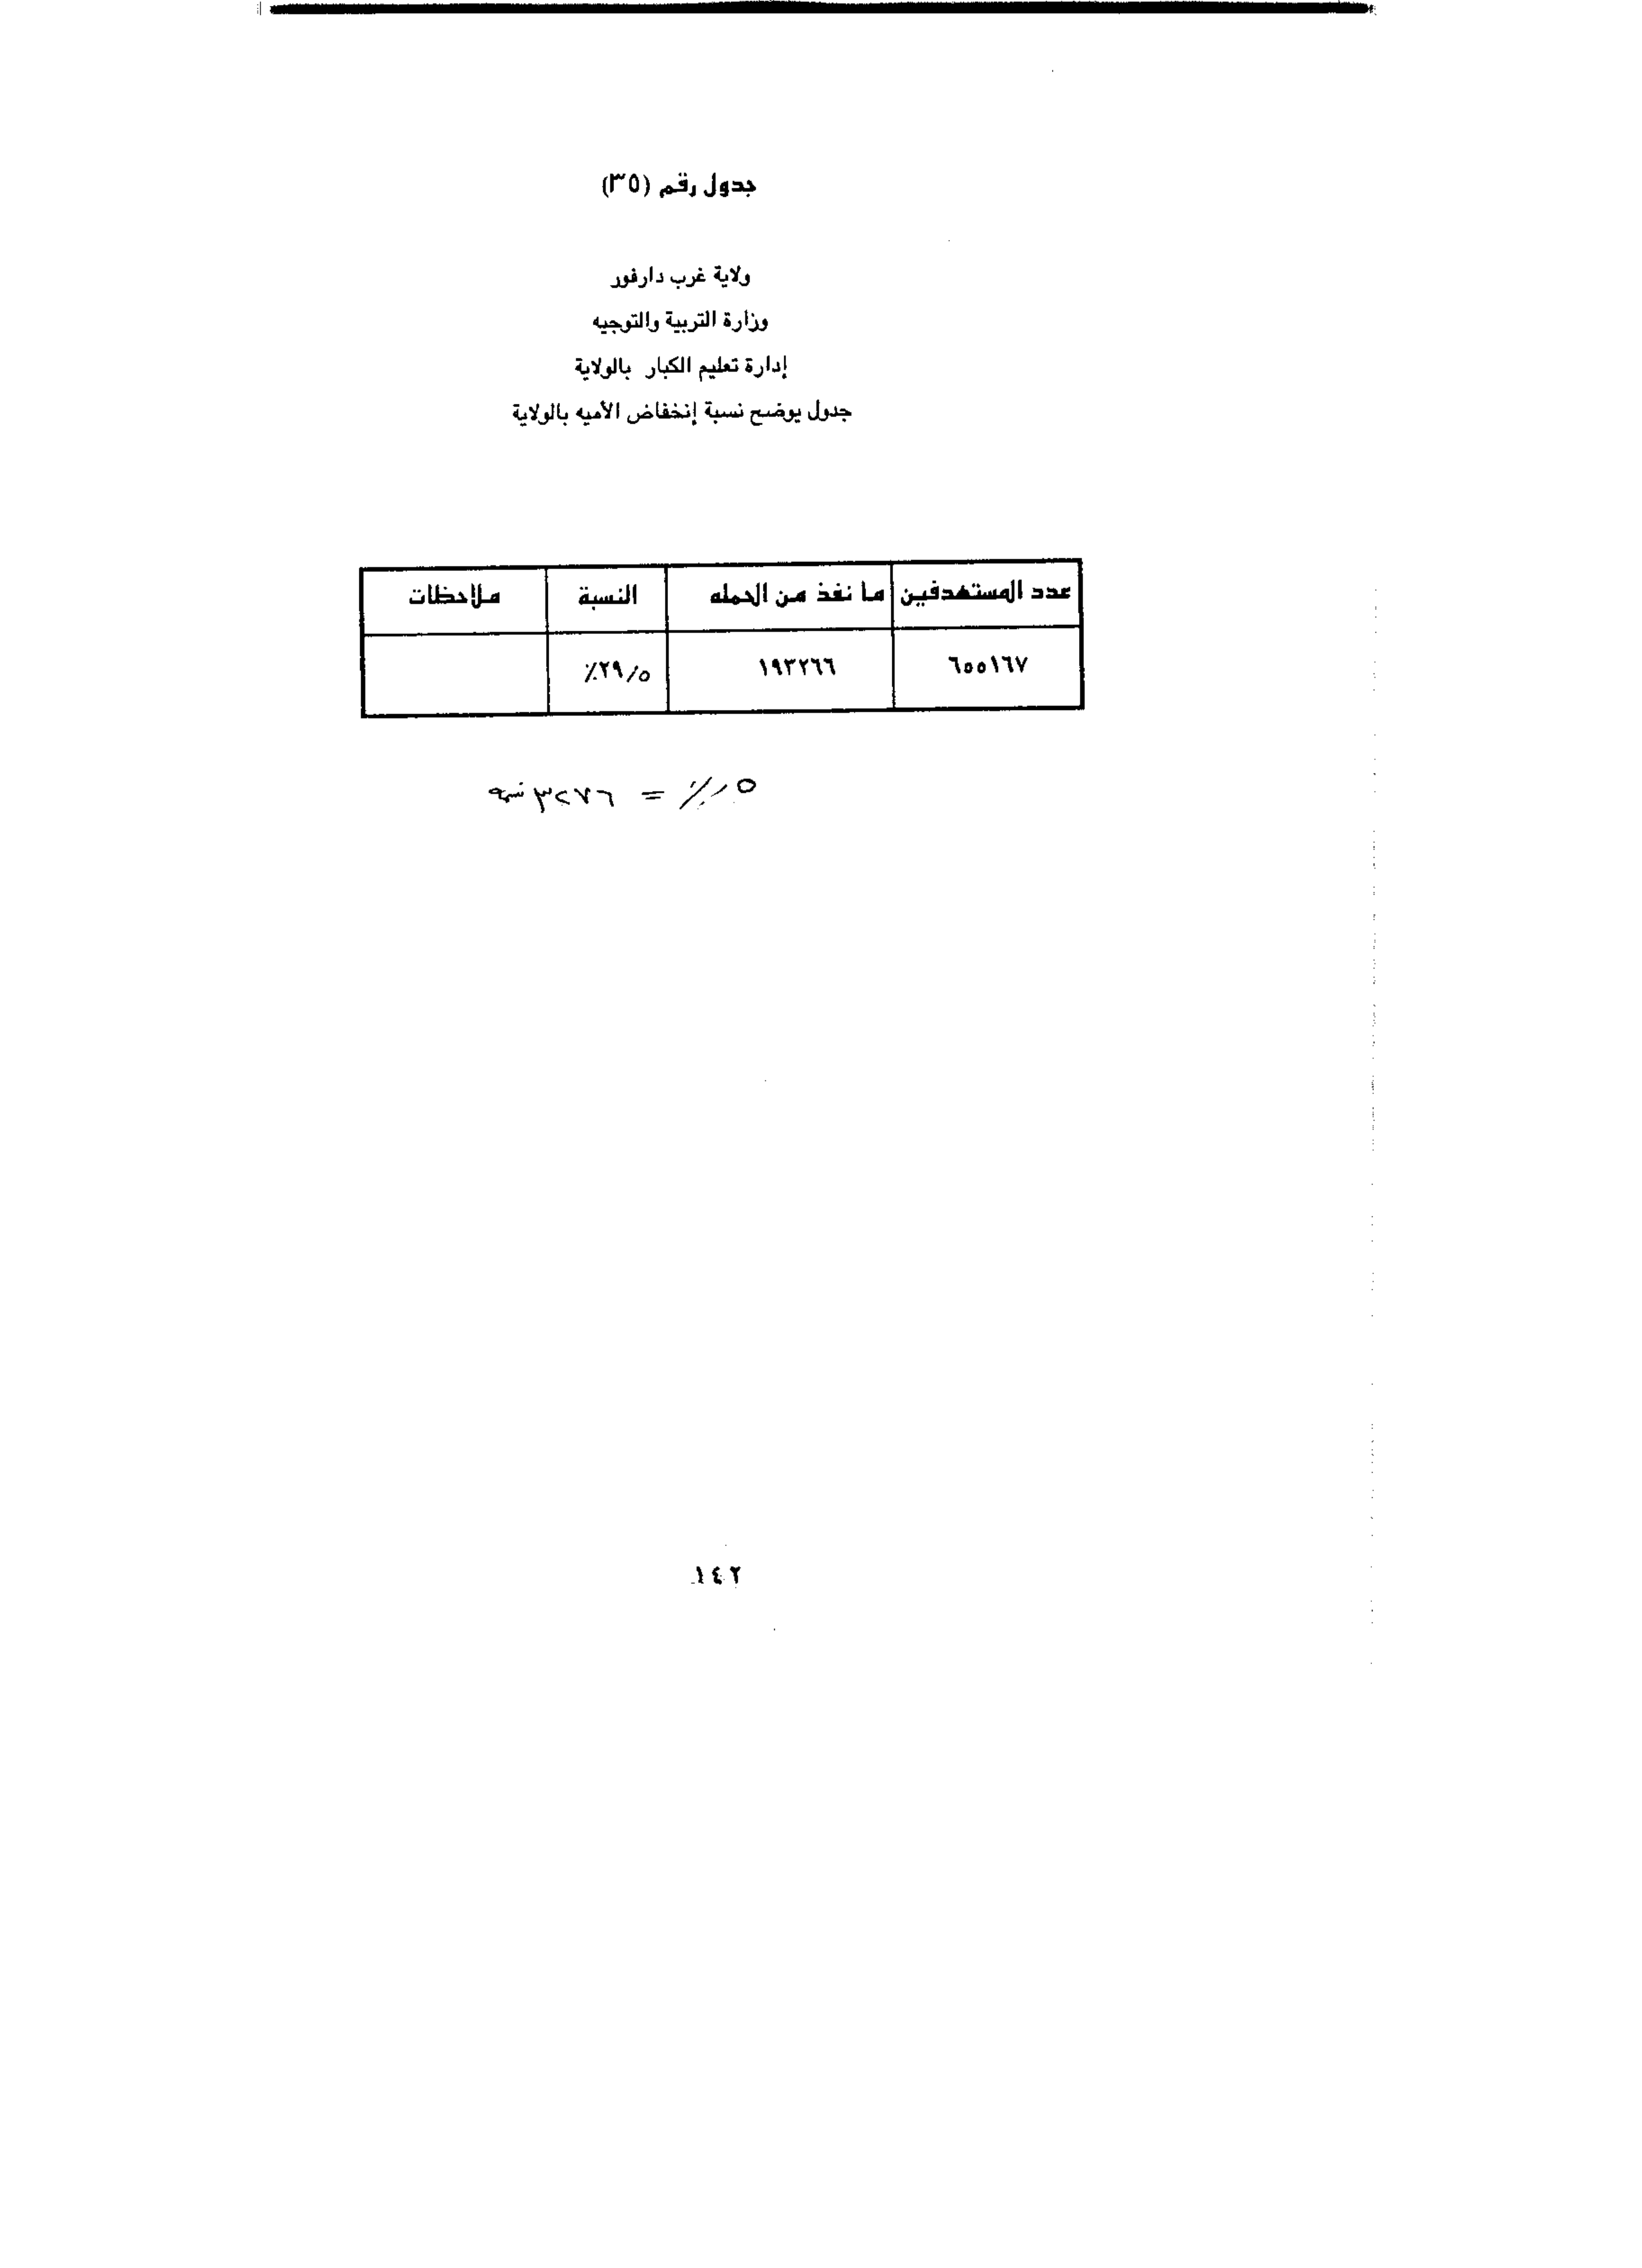 جدول رقم (٣٥)
ولاية غرب دارفور
وزارة التربية والتوجيه
إدارة تعليم الكبار بالولاية
جدول يوضح نسبة إنخفاض الأميه بالولاية
عدد المستهدفين ما نفذ من الحمله النسبة ملاحظات
٦٥٥١٦٧ ١٩٣٢٦٦ ٢٩/٥٪
٥ر٪ = ٣٢٧٦ نسمه
١٤٢